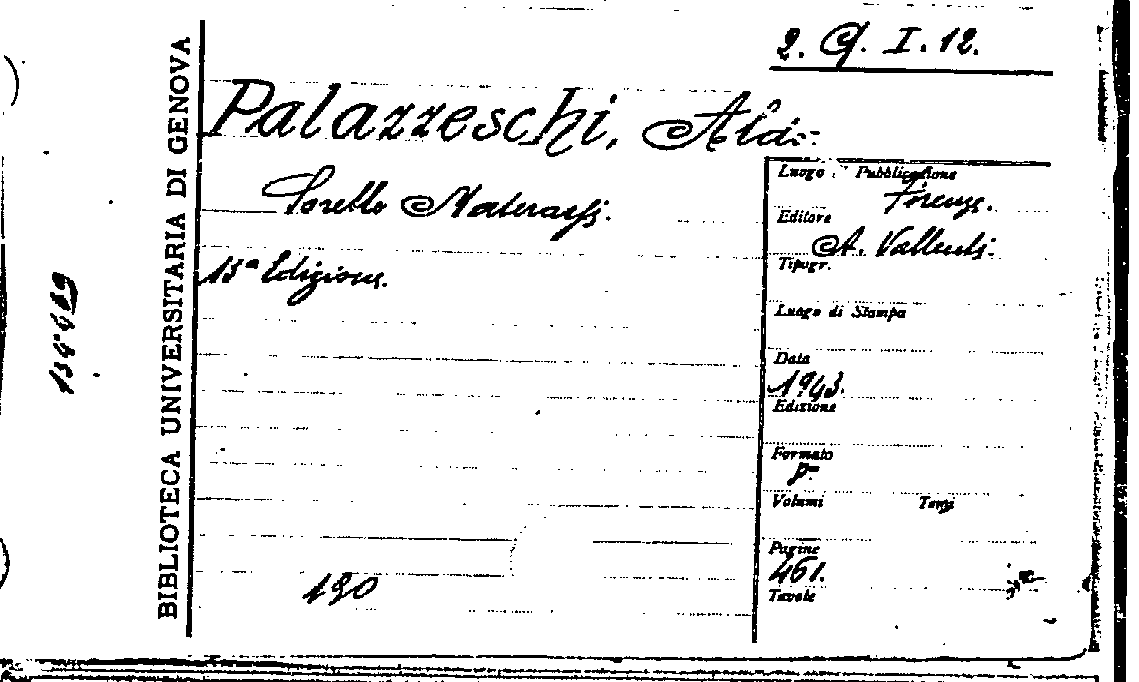 2. G. I. 12.
BIBLIOTECA UNIVERSITARIA DI GENOVA
Palazzeschi, Aldo.
Sorelle Materassi.
13ª Edizione.
190
Luogo Pubblicazione
Firenze.
Editore
A. Vallecchi.
Tipogr.
Luogo di Stampa
Data
1943.
Edizione
Formato
Volumi Tomi
Pagine
461.
Tavole